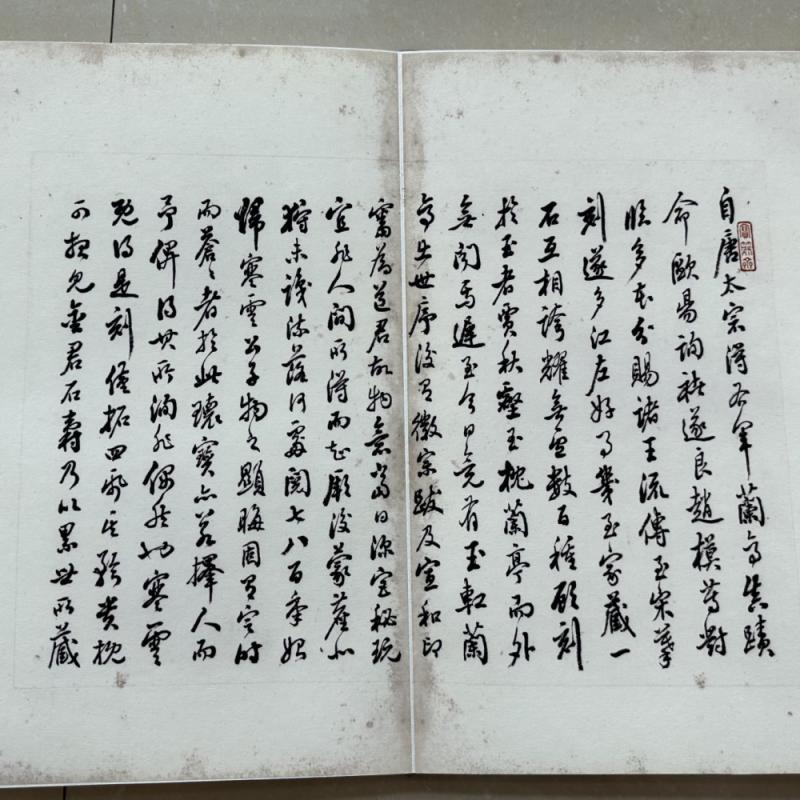 自唐太宗得右軍蘭亭真蹟
命歐陽詢褚遂良趙模等對
臨多本分賜諸王流傳至宋摹
刻遂多江左好事幾至家藏一
石互相誇耀無慮數百種頋刻
於玉者賈秋壑玉枕蘭亭而外
無聞焉遲至今日竟有玉版蘭
亭出世序後有徽宗跋及宣和印
審為道君故物意當日深宮秘玩
宜非人間所得而知厥後蒙塵北
狩未識流落何處閱七八百年始
歸寒雲公子物之顯晦固有定時
而蒼蒼者於此瓌寶亦若擇人而
予俾得其所洵非偶然也寒雲
既得是刻僅拓四飛珍貴
可想見金君石壽乃以累世所藏